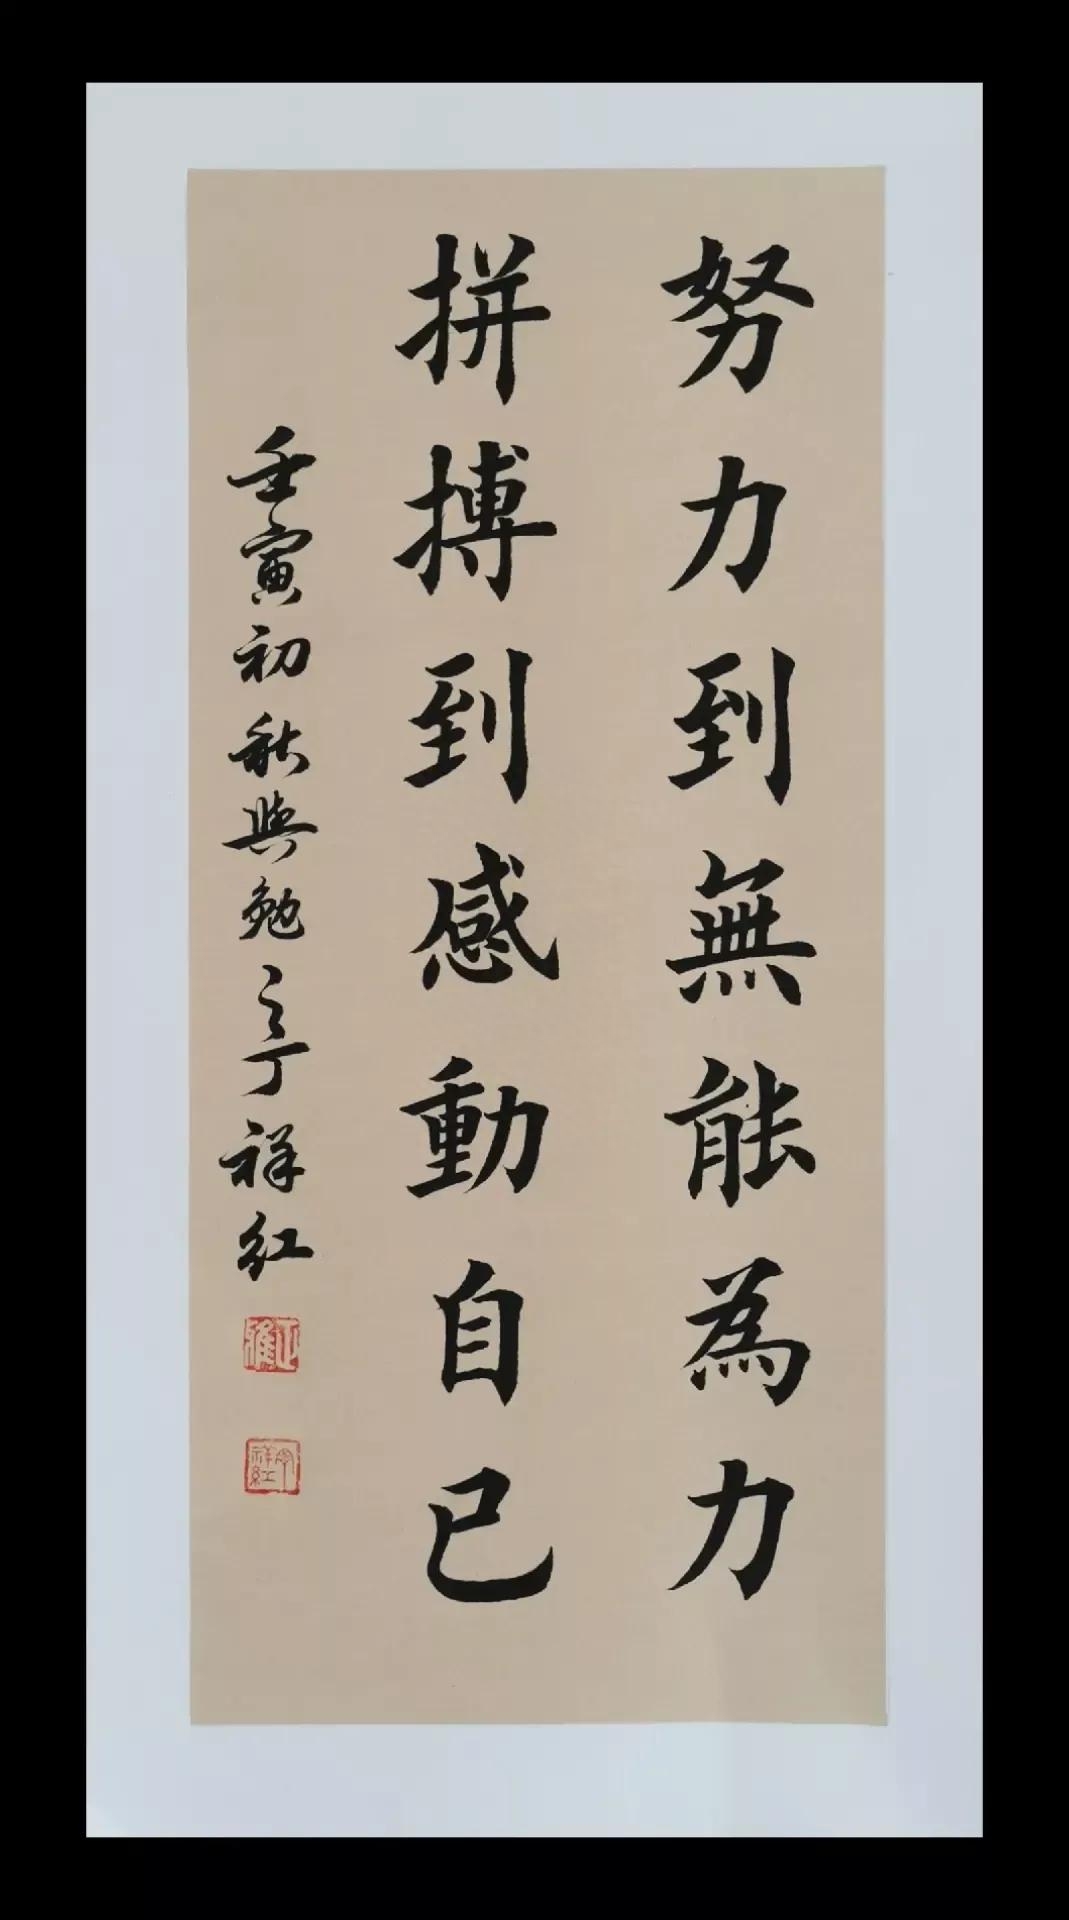 努力到無能為力
拼搏到感動自己
壬寅初秋與勉之丁祥红